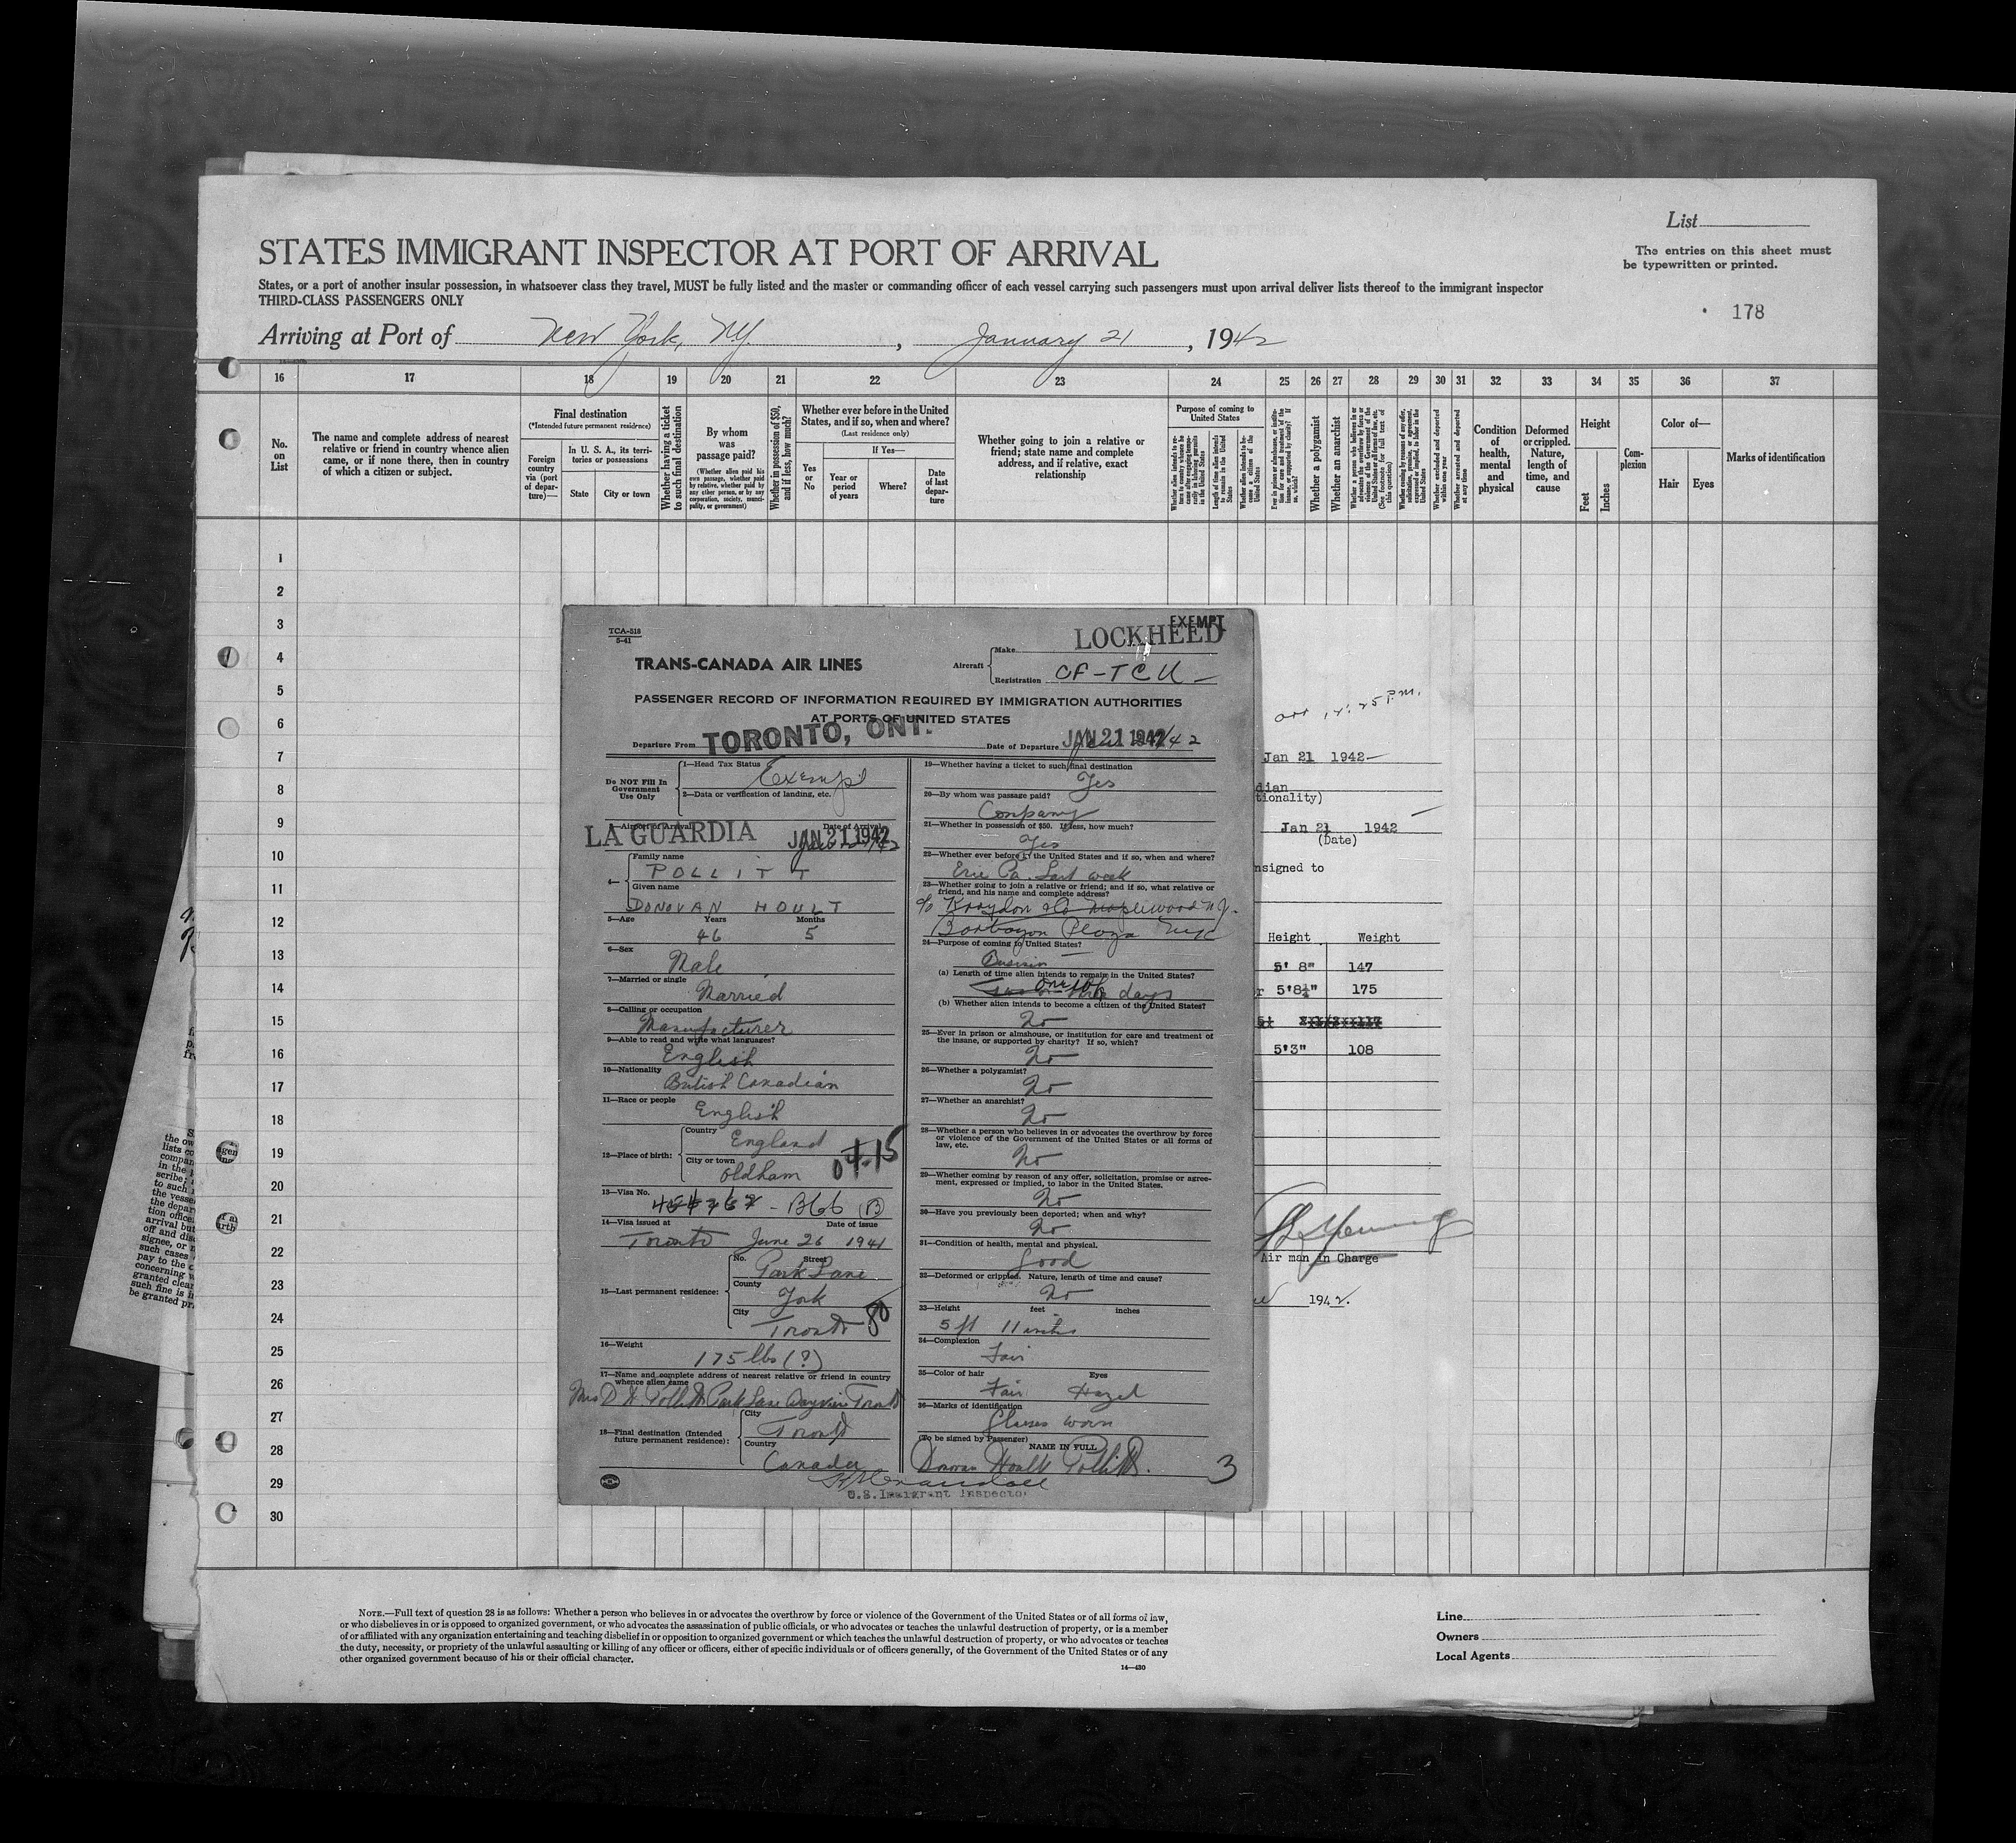 List
The entries on this sheet must
be typewritten or printed.
178
STATES IMMIGRANT INSPECTOR AT PORT OF ARRIVAL
States, or a port of another insular possession, in whatsoever class they travel, MUST be fully listed and the master or commanding officer of each vessel carrying such passengers must upon arrival deliver lists thereof to the immigrant inspector
THIRD-CLASS PASSENGERS ONLY
Arriving at Port of New York, NY. , January 21 , 1942
16 17 18 19 20 21 22 23 24 25 26 27 28 29 30 31 32 33 34 35 36 37
No. on List
The name and complete address of nearest
relative or friend in country whence alien
came, or if none there, then in country
of which a citizen or subject.
Final destination
(*Intended future permanent residence)
Foreign country via (port of departure)—
In U. S. A., its territories or possessions
State City or town
Whether having a ticket to such final destination
By whom was passage paid?
(Whether alien paid his own passage, whether paid by relative, whether paid by any other person, or by any corporation, society, municipality, or government)
Whether in possession of $50, and if less, how much?
Whether ever before in the United
States, and if so, when and where?
(Last residence only)
If Yes—
Yes or No
Year or period of years
Where?
Date of last departure
Whether going to join a relative or
friend; state name and complete
address, and if relative, exact
relationship
Purpose of coming to United States
Whether alien intends to return to country whence he came after engaging temporarily in laboring pursuits in the United States
Length of time alien intends to remain in the United States
Whether alien intends to become a citizen of the United States
Ever in prison or almshouse, or institution for care and treatment of the insane, or supported by charity? If so, which?
Whether a polygamist
Whether an anarchist
Whether a person who believes in or advocates the overthrow by force or violence of the Government of the United States or all forms of law, etc. (See footnote for full text of this question)
Whether coming by reason of any offer, solicitation, promise, or agreement, expressed or implied, to labor in the United States
Whether excluded and deported within one year
Whether arrested and deported at any time
Condition of health, mental and physical
Deformed or crippled. Nature, length of time, and cause
Height
Feet Inches
Complexion
Color of—
Hair Eyes
Marks of identification
1
2
3
4
5
6
7
8
9
10
11
12
13
14
15
16
17
18
19
20
21
22
23
24
25
26
27
28
29
30
TCA-518
5-41
EXEMPT
TRANS-CANADA AIR LINES
Aircraft
Make LOCKHEED
Registration CF-TCU
PASSENGER RECORD OF INFORMATION REQUIRED BY IMMIGRATION AUTHORITIES
AT PORTS OF UNITED STATES
Departure From TORONTO, ONT.
Date of Departure JAN 21 1942
Do NOT Fill In
Government
Use Only
1—Head Tax Status
Exempt
2—Data or verification of landing, etc.
3—Airport of Arrival Date of Arrival
LA GUARDIA JAN 21 1942
4—
Family name
POLLITT
Given name
DONOVAN HOULT
5—Age Years Months
46 5
6—Sex
Male
7—Married or single
Married
8—Calling or occupation
Manufacturer
9—Able to read and write what languages?
English
10—Nationality
British Canadian
11—Race or people
English
12—Place of birth:
Country
England
City or town
Oldham
04-15
13—Visa No.
B66 (B)
14—Visa issued at Date of issue
Toronto June 26 1941
15—Last permanent residence:
No. Street
Park Lane
County
York
City
Toronto
80
16—Weight
175 lbs (?)
17—Name and complete address of nearest relative or friend in country
whence alien came
Mrs D H Pollitt Park Lane Bayview Toronto
18—Final destination (Intended
future permanent residence):
City
Toronto
Country
Canada
19—Whether having a ticket to such final destination
Yes
20—By whom was passage paid?
Company
21—Whether in possession of $50. If less, how much?
Yes
22—Whether ever before in the United States and if so, when and where?
Erie Pa. Last week
23—Whether going to join a relative or friend; and if so, what relative or
friend, and his name and complete address?
c/o & Co Maplewood N.J.
Barbizon Plaza NYC
24—Purpose of coming to United States?
Business
(a) Length of time alien intends to remain in the United States?
days
(b) Whether alien intends to become a citizen of the United States?
No
25—Ever in prison or almshouse, or institution for care and treatment of
the insane, or supported by charity? If so, which?
No
26—Whether a polygamist?
No
27—Whether an anarchist?
No
28—Whether a person who believes in or advocates the overthrow by force
or violence of the Government of the United States or all forms of
law, etc.
No
29—Whether coming by reason of any offer, solicitation, promise or agree-
ment, expressed or implied, to labor in the United States.
No
30—Have you previously been deported; when and why?
No
31—Condition of health, mental and physical.
Good
32—Deformed or crippled. Nature, length of time and cause?
No
33—Height feet inches
5 ft 11 inches
34—Complexion
Fair
35—Color of hair Eyes
Fair Hazel
36—Marks of identification
Glasses worn
(To be signed by Passenger)
NAME IN FULL
Donovan Hoult Pollitt.
3
U.S. Immigrant Inspector
arr 12:25 P.M.
Jan 21 1942
dian
tionality)
Jan 21 1942
(Date)
nsigned to
Height Weight
5' 8" 147
r 5'8½" 175
5'3" 108
Air man in Charge
1942.
NOTE.—Full text of question 28 is as follows: Whether a person who believes in or advocates the overthrow by force or violence of the Government of the United States or of all forms of law,
or who disbelieves in or is opposed to organized government, or who advocates the assassination of public officials, or who advocates or teaches the unlawful destruction of property, or is a member
of or affiliated with any organization entertaining and teaching disbelief in or opposition to organized government or which teaches the unlawful destruction of property, or who advocates or teaches
the duty, necessity, or propriety of the unlawful assaulting or killing of any officer or officers, either of specific individuals or of officers generally, of the Government of the United States or of any
other organized government because of his or their official character.
14—430
Line
Owners
Local Agents